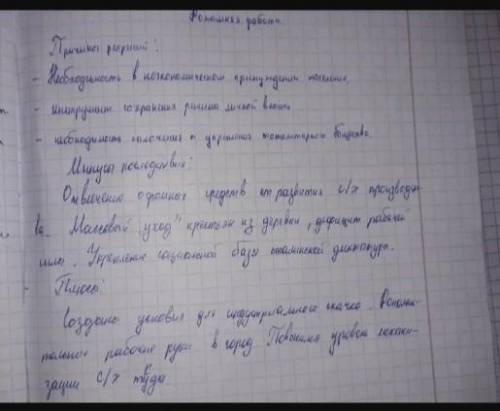 Домашняя работа.
Причины репрессий:
- Необходимость в неэкономическом принуждении населения.
- инструмент сохранения режима личной власти
- необходимость сплочения и укрепления тоталитарного общества.
Минусы последствий:
Отвлечение огромных средств от развития с/х производст
ва. Массовый "уход" крестьян из деревни, дефицит рабочей
силы. Укрепление социальной базы сталинской диктатуры.
- Плюсы:
Созданы условия для индустриального скачка.
тельные рабочие руки в город. Повышение уровня механи-
зации с/х труда.